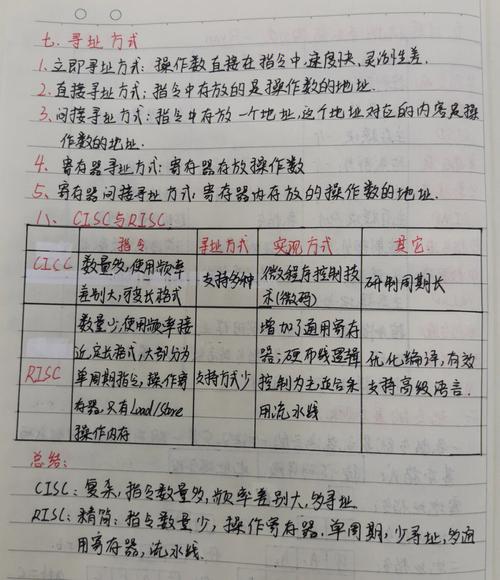 七. 寻址方式
1. 立即寻址方式: 操作数直接在指令中,速度快、灵活性差.
2. 直接寻址方式: 指令中存放的是操作数的地址.
3. 间接寻址方式: 指令中存放一个地址,这个地址对应的内容是操
作数的地址.
4. 寄存器寻址方式: 寄存器存放操作数
5. 寄存器间接寻址方式: 寄存器内存放的操作数的地址.
八. CISC与RISC:
指令 寻址方式 实现方式 其它
CISC
数量多,使用频率
差别大,可变长格式
支持多种
微程序控制技
术(微码)
研制周期长
RISC
数量少,使用频率接
近,定长格式,大部分为
单周期指令,操作寄
存器,只有Load/Store
操作内存
支持方式少
增加了通用寄存
器;硬布线逻辑
控制为主;适合采
用流水线
优化编译,有效
支持高级语言.
总结:
CISC: 复杂,指令数量多,频率差别大,多寻址
RISC: 精简: 指令数量少, 操作寄存器,单周期,少寻址,多通
用寄存器,流水线.